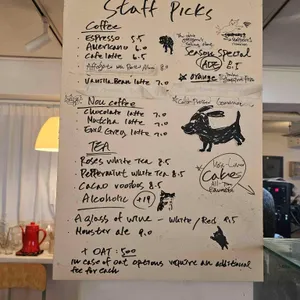 Staff Picks
Coffee
Espresso 5.5
Americano 6.0
Cafe latte 6.5
Vanilla Bean latte 7.0
Season Special
(ADE) 8.5
orange
Non coffee
Chocolate latte 7.0
Matcha latte 7.0
Earl Grey latte 7.0
TEA
Roses White Tea 8.5
Peppermint White Tea 8.5
Cacao rooibos 8.5
Cakes
Alcoholic +19
A glass of wine - White / Red 9.5
Monster ale 9.0
+ OAT : 500
in case of oat options require an additional
fee for each